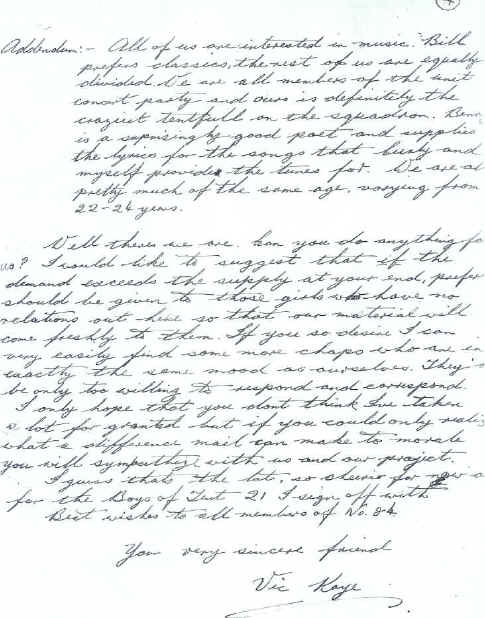 4
Addendum:- All of us are interested in music. Bill
prefers classics, the rest of us are equally
divided. We are all members of the unit
consort party and ours is definitely the
craziest tentfull on the squadron. Benn
is a suprisingly good poet and supplies
the lyrics for the songs that and
myself provide the tunes for. We are al
pretty much of the same age, varying from
22-24 years.
Well there we are. Can you do anything fo
us? I would like to suggest that if the
demand exceeds the supply at your end, prefer
should be given to those girls who have no
relations out here so that our material will
come freshly to them. If you so desire I can
very easily find some more chaps who are in
exactly the same mood as ourselves. They'
be only too willing to respond and correspond
I only hope that you dont think I've taken
a lot for granted but if you could only realis
what a difference mail can make to morale
you will sympathize with us and our project.
I guess thats the lot, so cheerio for now a
for the Boys of Tent 21 I sign off with
Best wishes to all members of No. 84
Your very sincere friend
Vic Kaye